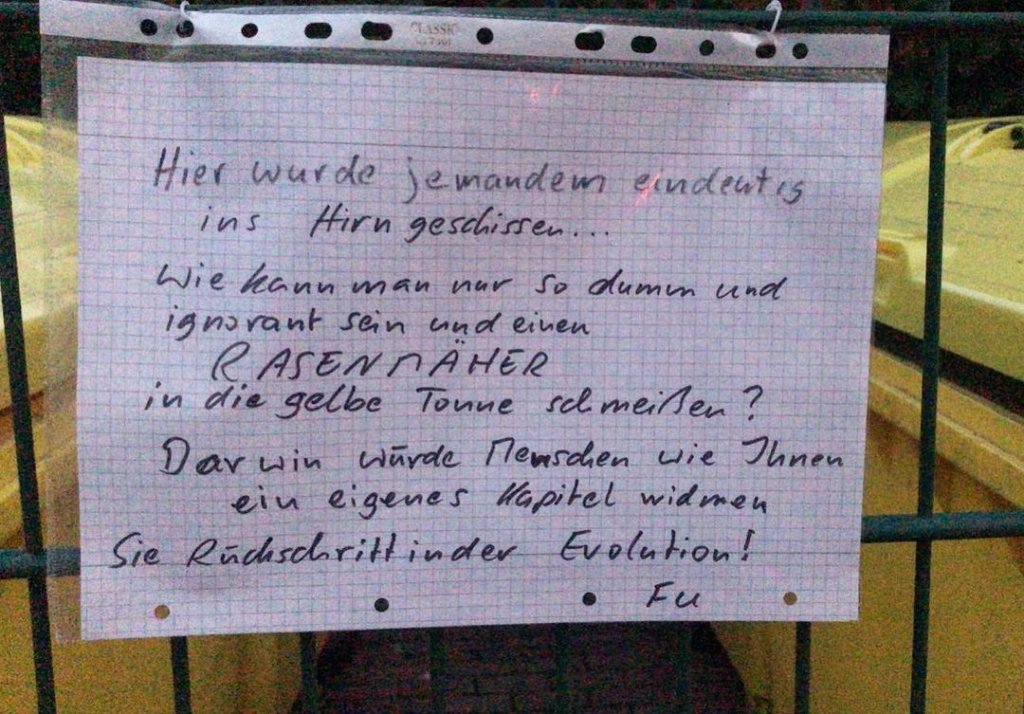 CLASSIC
Hier wurde jemandem eindeutig
ins Hirn geschissen...
Wie kann man nur so dumm und
ignorant sein und einen
RASENMÄHER
in die gelbe Tonne schmeißen?
Darwin würde Menschen wie Ihnen
ein eigenes Kapitel widmen
Sie Rückschritt in der Evolution!
FU